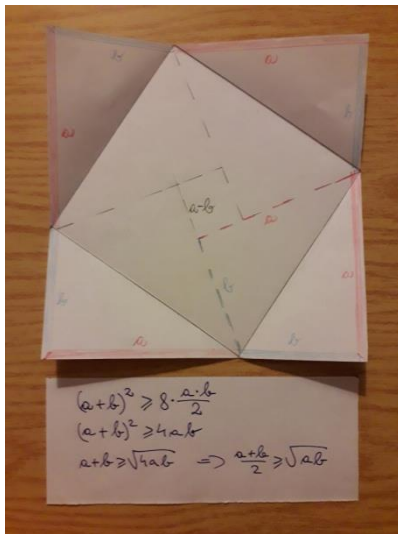 b a
a b
a-b
a
b
b a
a b
(a+b)² ≥ 8·a·b/2
(a+b)² ≥ 4ab
a+b ≥ √4ab ⇒ a+b/2 ≥ √ab